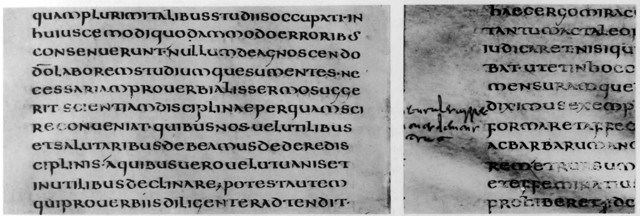 quamplurimitalibusstudiisoccupati·in
huiuscemodiquodammodoerroribus
consenuerunt·nullumdeagnoscendo
dōlaboremstudiumquesumentes·ne
cessariamprouerbialissermosugge
ritscientiamdisciplinaeperquamsci
reconueniat·quibusnosuelutilibus
etsalutaribusdebeamusdederedis
ciplinis·aquibusuerouelutuaniset
inutilibusdeclinare·potestautem
quiprouerbiisdiligenteradtendit·
haecergomirac
tantumactaleo
iudicaretnisiqu
bat·utetinhocc
mensuramque
diximusexemp
formaretaffec
acbarbarumanc
remetrursum
eteffeminatiu
prohiberetadc